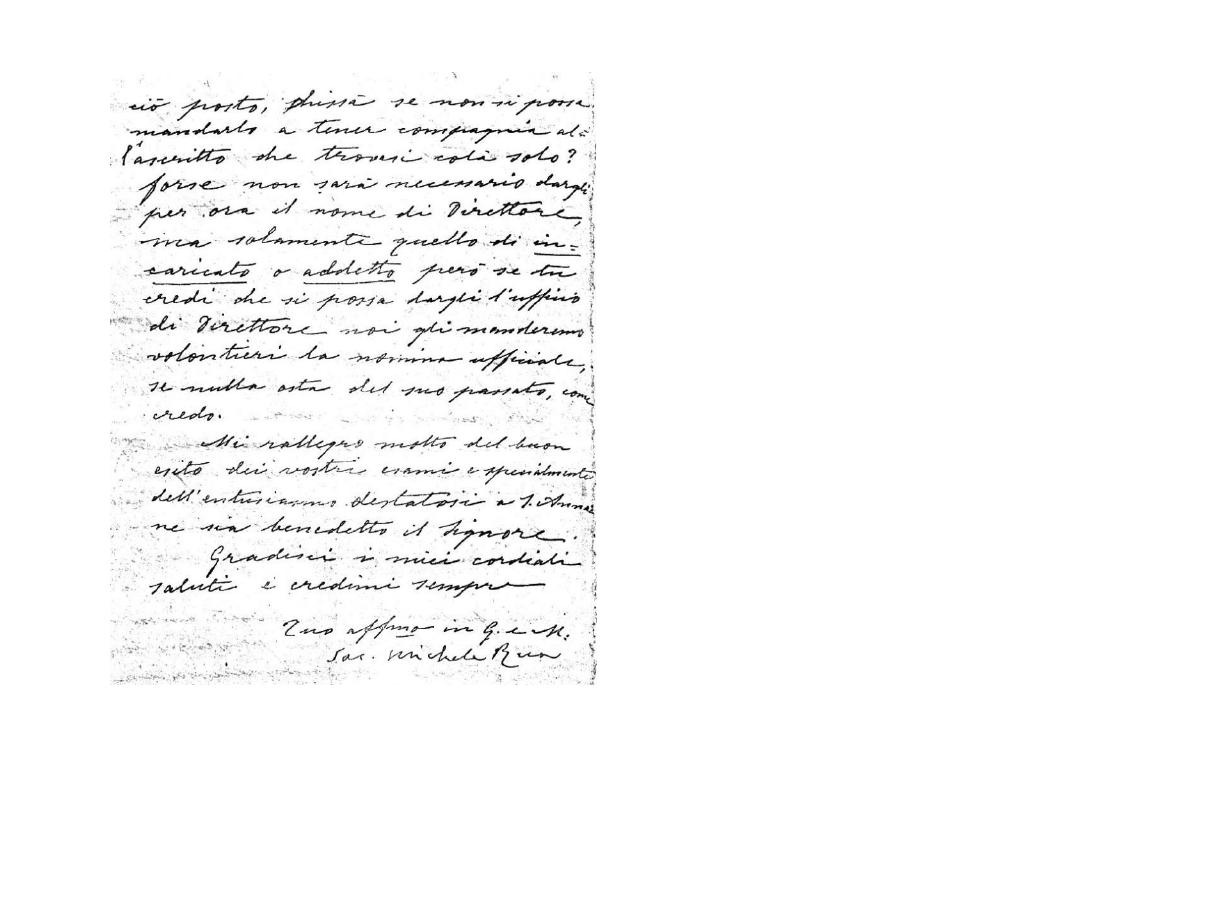 ciò posto, chissà se non si possa
mandarlo a tener compagnia al=
l'ascritto che trovasi colà solo?
forse non sarà necessario dargli
per ora il nome di Direttore,
ma solamente quello di in=
caricato o addetto però se tu
credi che si possa dargli l'uffizio
di Direttore noi gli manderemo
volontieri la nomina ufficiale,
se nulla osta del suo passato, come
credo.
Mi rallegro molto del buon
esito dei vostri esami e specialmente
dell'entusiasmo destatosi a S. Anna
ne sia benedetto il Signore.
Gradisci i miei cordiali
saluti e credimi sempre
Tuo affmo in G. e M.
Sac. Michele Rua